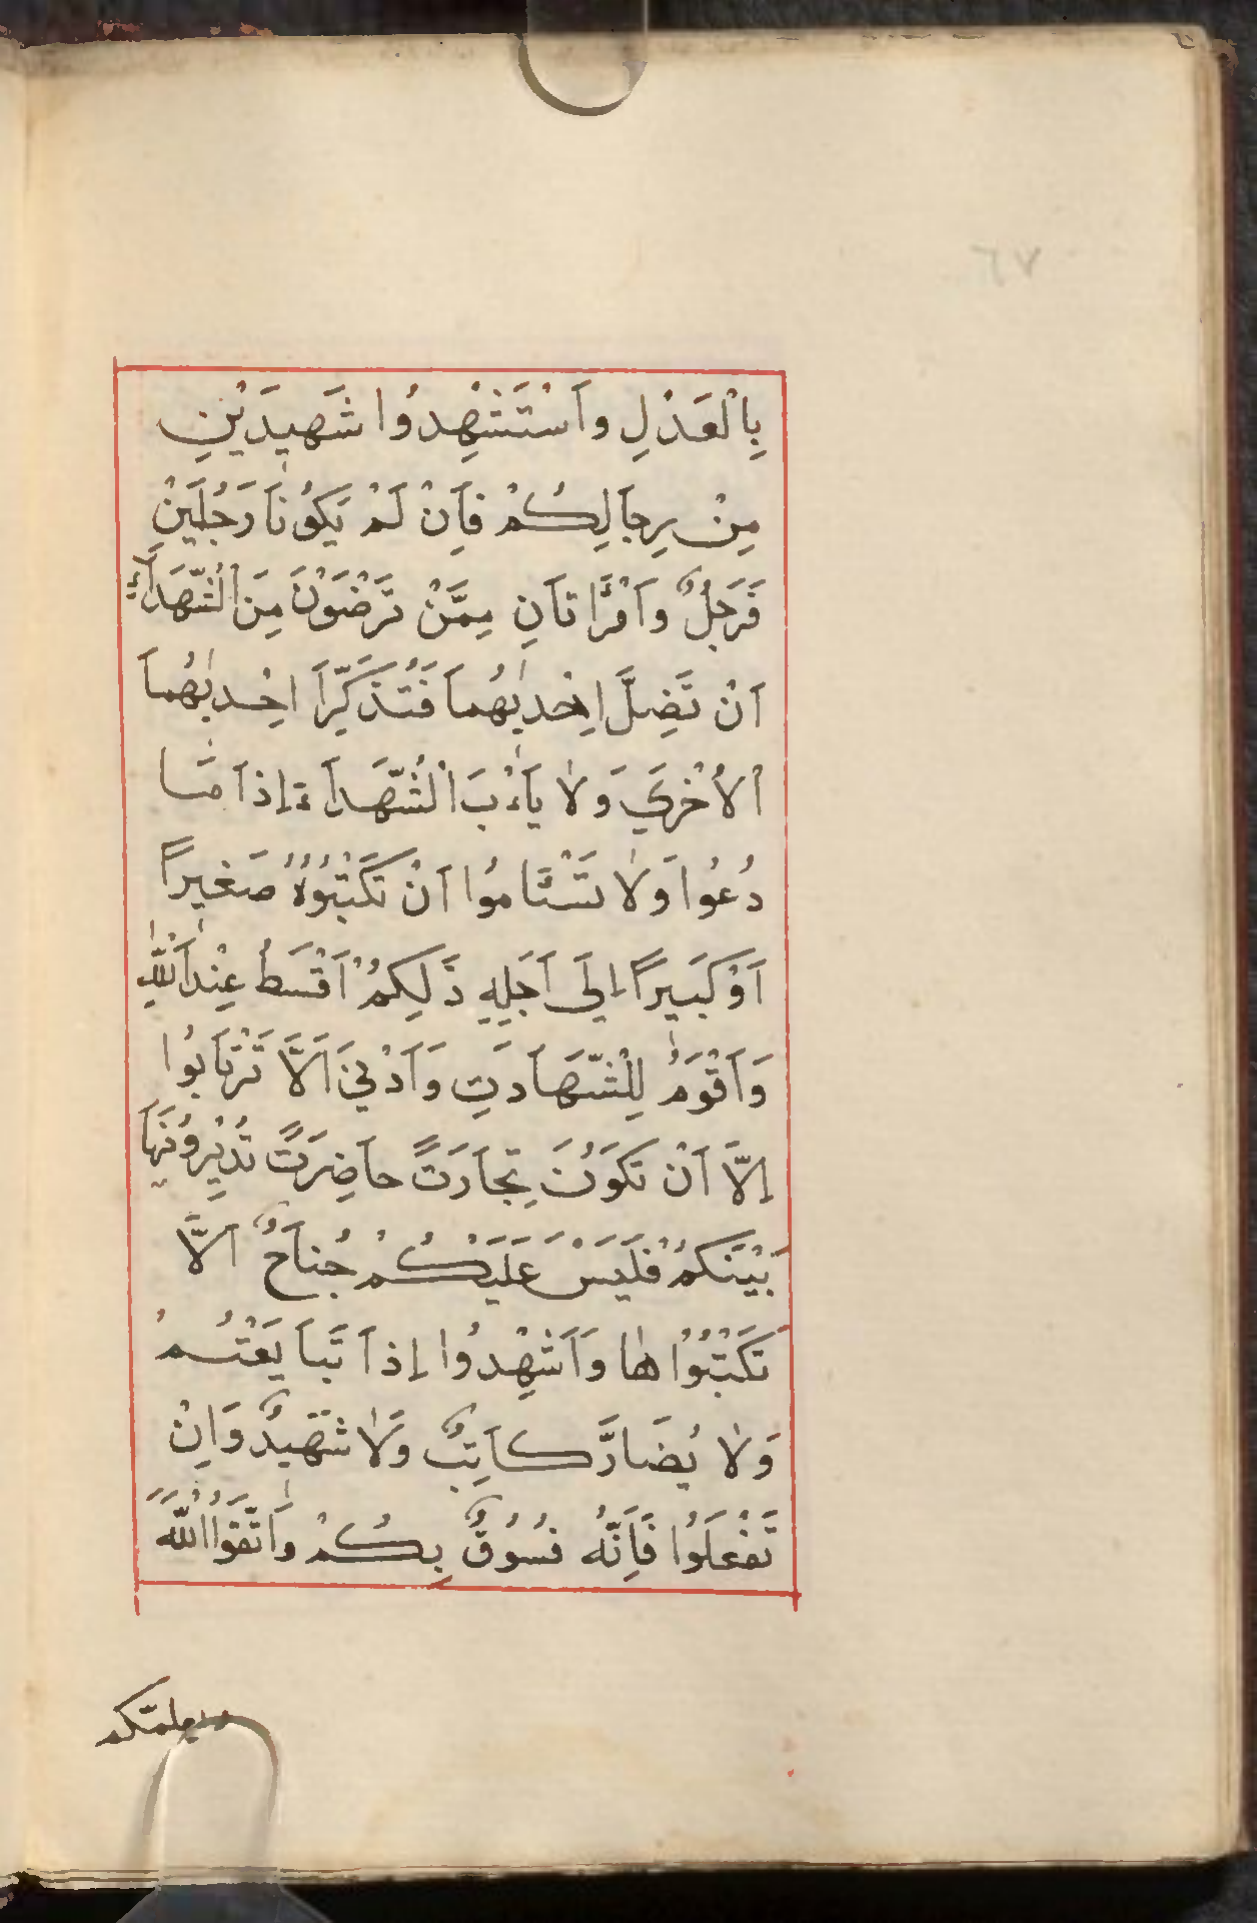 ٦٧
بِالْعَدْلِ وَاَسْتَشْهِدُوا شَهِيدَيْنِ
مِنْ رِجاَلِكُمْ فَاِنْ لَمْ يَكُونَا رَجُلَيْنِ
فَرَجُلٌ وَاَمْرَاَتاَنِ مِمَّنْ تَرْضَوْنَ مِنَ الْشُّهَدَاَءِ
اَنْ تَضِلَّ اِحْديٰهُماَ فَتُذَكِّرَاَ اِحْديٰهُماَ
اْلاُخْرَيَ وَلاٰ يَاَءْبَ الْشُّهَدَاَءَ اِذاَ مَا
دُعُوا وَلاٰ تَسْئَامُوا اَنْ تَكْتُبُوُهُ صَغيراً
اَوْ كَبَيراً اِلَي اَجَلِهِ ذَلِكُمْ اَقْسَطُ عِنْدَاَللّٰهِ
وَاَقْوَمُ لِلْشَّهاَدَتِ وَاَدْنيَ اَلاَّ تَرْتاَبُوا
اِلاَّ اَنْ تَكَوُنَ تِجاَرَتً حاَضِرَتً تُدِيْرُونَهاَ
بَيْنَكُمْ فَلَيَسْ عَلَيَكُمْ جُناَحٌ اَلاَّ
تَكْتُبُوُاهٰا وَاَشْهِدُوا اِذاَ تَباَيَعْتُمْ
وَلاٰ يُضَارَّ كاَتِبٌ وَلاٰ شَهيدٌ وَاِنْ
تَفْعَلَوُا فَاِنَّهُ فُسُوُقٌ بِكُمْ وَاَتَّقَوُا اللّٰهَ
ويعلمكم